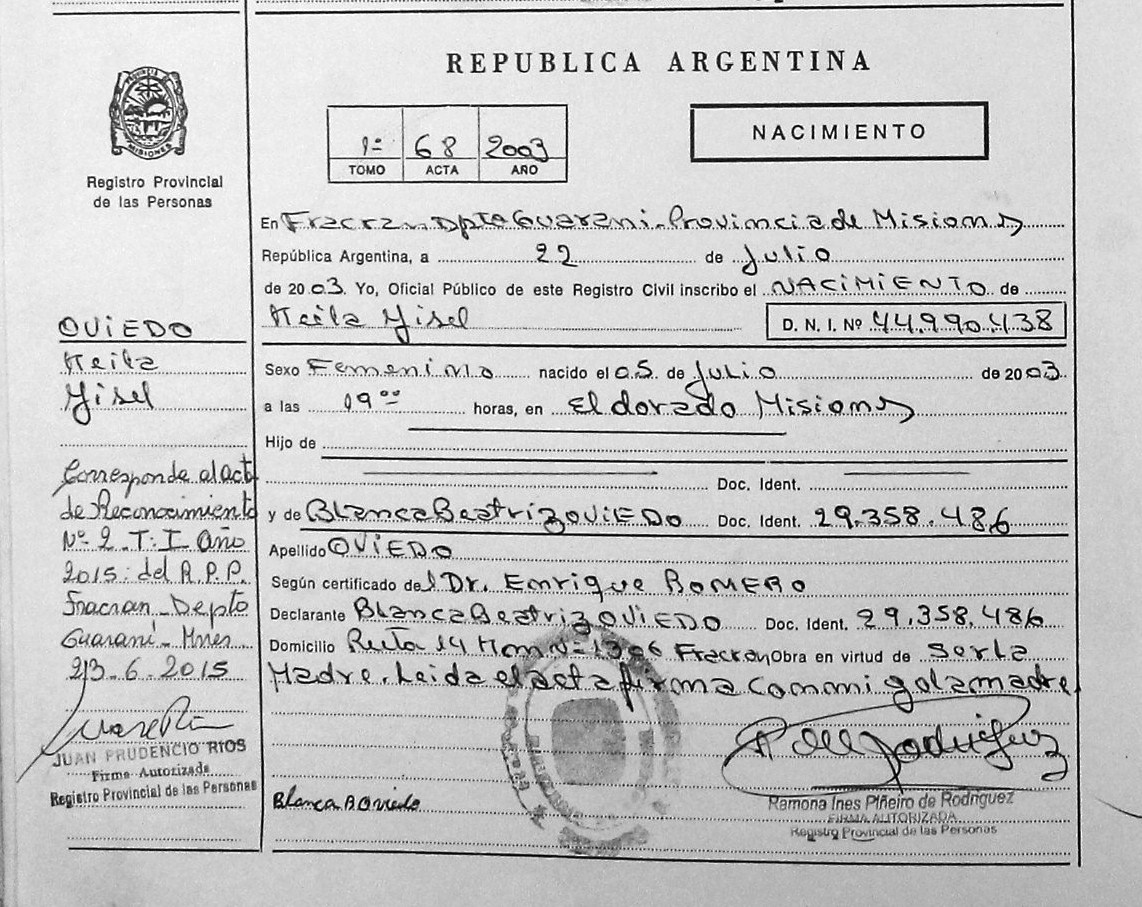 REPUBLICA ARGENTINA
PROVINCIA DE
MISIONES
Registro Provincial
de las Personas
1º 68 2003
TOMO ACTA AÑO
NACIMIENTO
En Fracran Dpto Guarani - Provincia de Misiones
República Argentina, a 22 de Julio
de 2003. Yo, Oficial Público de este Registro Civil inscribo el NACIMIENTO de
Keila Yisel D. N. I. Nº 44.990.438
Sexo Femenino nacido el 05 de Julio de 2003.
a las 19 ºº horas, en Eldorado Misiones
Hijo de
Doc. Ident.
y de Blanca Beatriz OVIEDO Doc. Ident. 29.358.486
Apellido OVIEDO
Según certificado del Dr. Enrique ROMERO
Declarante Blanca Beatriz OVIEDO Doc. Ident. 29.358.486
Domicilio Ruta 14 Nº Fracran Obra en virtud de Serla
Madre. Leida el acta firma conmigo la madre
Blanca B Oviedo
Ramona Ines Piñeiro de Rodriguez
FIRMA AUTORIZADA
Registro Provincial de las Personas
OVIEDO
Keila
Yisel
Corresponde al acta
de Reconocimiento
Nº 2 T. I Año
2015 del R.P.P.
Fracran - Depto
Guaraní - Mnes
23-6-2015
JUAN PRUDENCIO RIOS
Firma Autorizada
Registro Provincial de las Personas